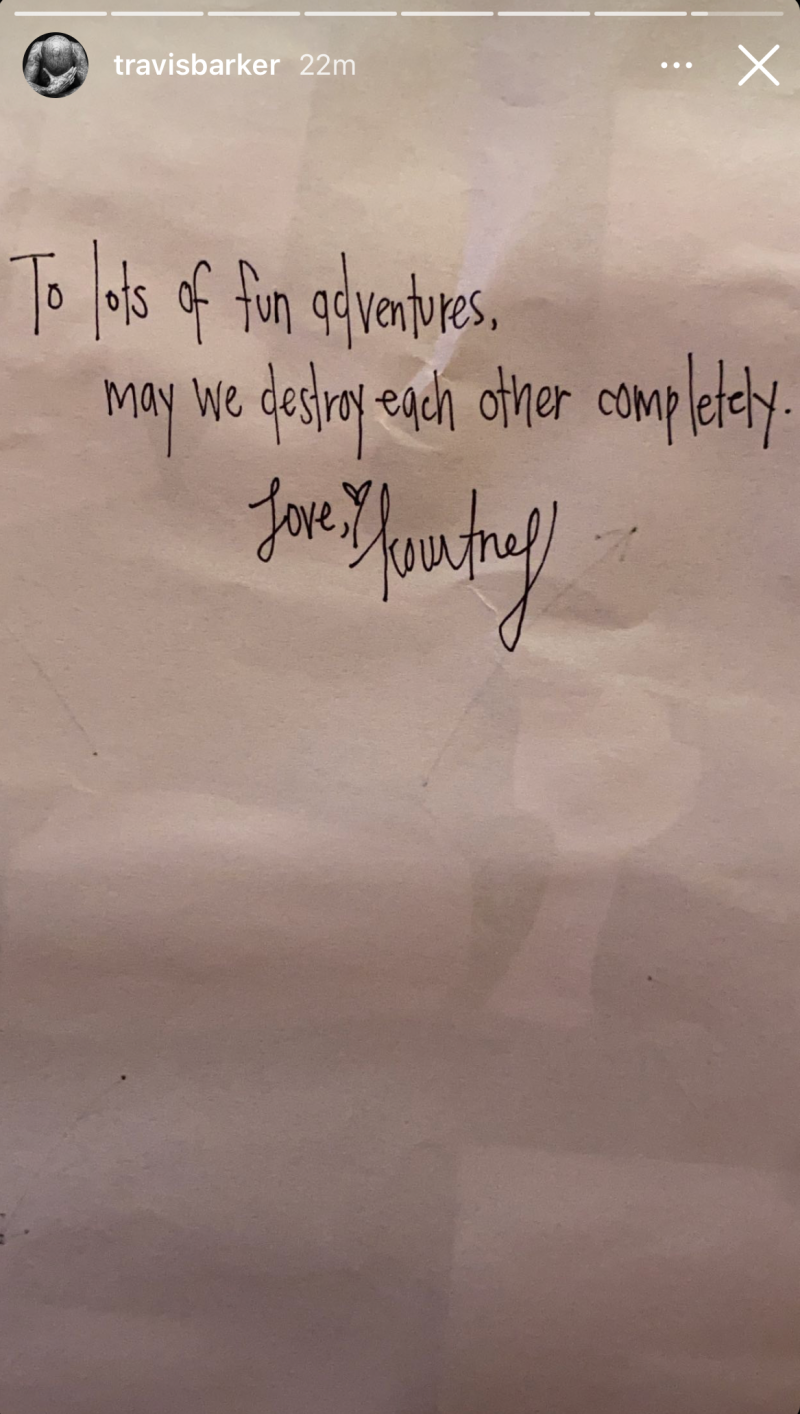 travisbarker 22m
To lots of fun adventures,
may we destroy each other completely.
Love, Kourtney